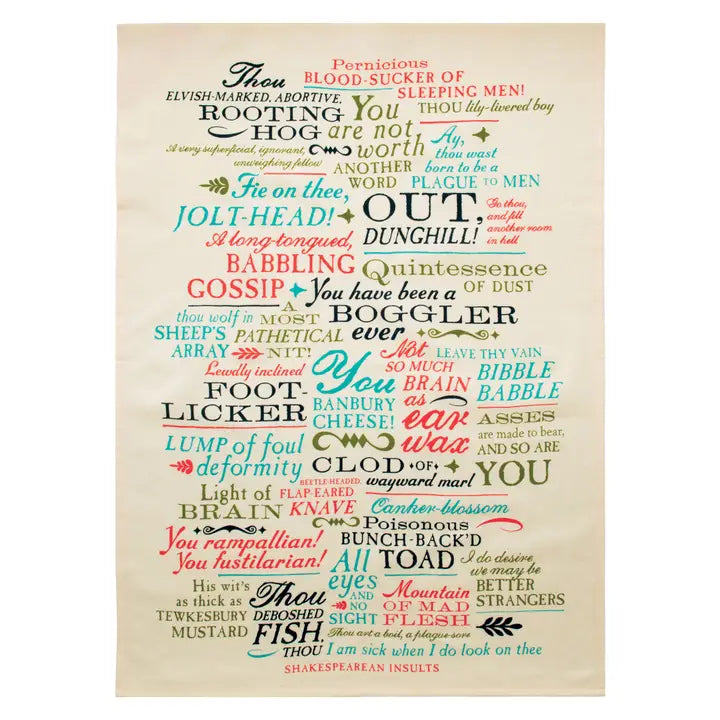 Pernicious
BLOOD-SUCKER OF
SLEEPING MEN!
Thou
ELVISH-MARKED, ABORTIVE,
ROOTING
HOG
You
are not
worth
ANOTHER
WORD
THOU lily-livered boy
A very superficial, ignorant,
unweighing fellow
Ay,
thou wast
born to be a
PLAGUE TO MEN
Fie on thee,
JOLT-HEAD!
OUT,
DUNGHILL!
Go thou,
and fill
another room
in hell
A long-tongued,
BABBLING
GOSSIP
Quintessence
OF DUST
You have been a
BOGGLER
ever
thou wolf in
SHEEP'S
ARRAY
A
MOST
PATHETICAL
NIT!
Lewdly inclined
FOOT-
LICKER
You
BANBURY
CHEESE!
Not
SO MUCH
BRAIN
as
ear
wax
LEAVE THY VAIN
BIBBLE
BABBLE
ASSES
are made to bear,
AND SO ARE
YOU
LUMP of foul
deformity
CLOD OF
wayward marl
Light of
BRAIN
BEETLE-HEADED,
FLAP-EARED
KNAVE
Canker-blossom
Poisonous
BUNCH-BACK'D
TOAD
You rampallian!
You fustilarian!
All
eyes
AND
NO
SIGHT
I do desire
we may be
BETTER
STRANGERS
His wit's
as thick as
TEWKESBURY
MUSTARD
Thou
DEBOSHED
FISH,
THOU
Mountain
OF MAD
FLESH
Thou art a boil, a plague-sore
I am sick when I do look on thee
SHAKESPEAREAN INSULTS